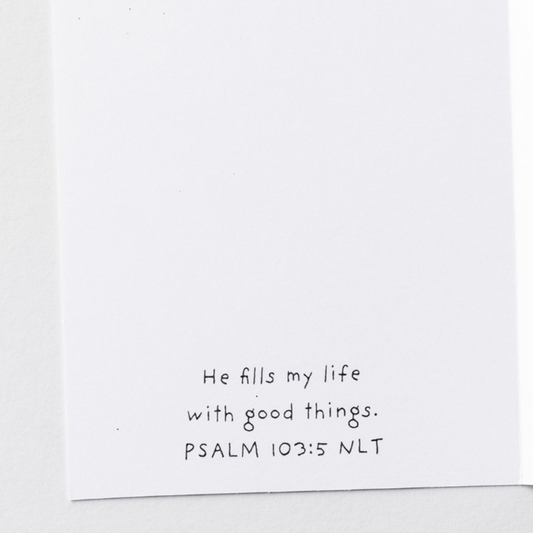 He fills my life
with good things.
PSALM 103:5 NLT